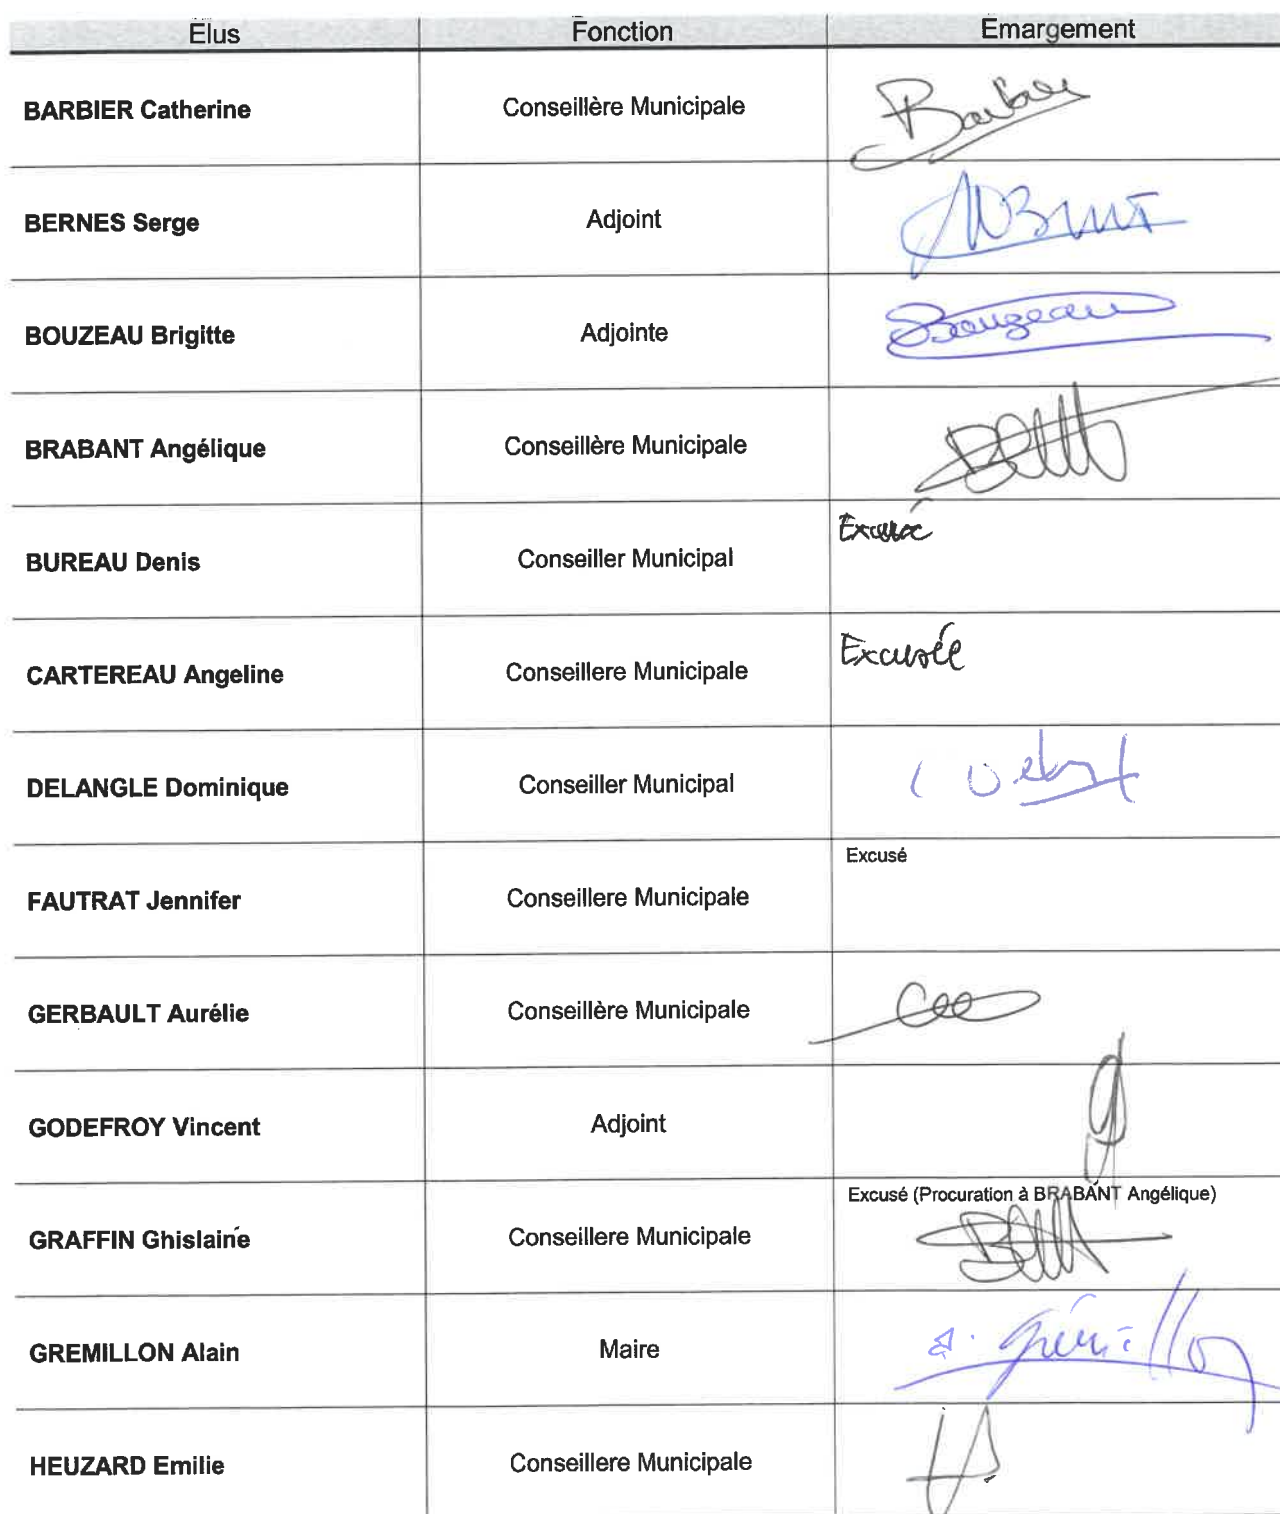 Elus Fonction Emargement
BARBIER Catherine Conseillère Municipale Barbier
BERNES Serge Adjoint
BOUZEAU Brigitte Adjointe Bouzeau
BRABANT Angélique Conseillère Municipale
BUREAU Denis Conseiller Municipal Excusé
CARTEREAU Angeline Conseillere Municipale Excusée
DELANGLE Dominique Conseiller Municipal
FAUTRAT Jennifer Conseillere Municipale Excusé
GERBAULT Aurélie Conseillère Municipale
GODEFROY Vincent Adjoint
Excusé (Procuration à BRABANT Angélique)
GRAFFIN Ghislaine Conseillere Municipale
GREMILLON Alain Maire A. Grémillon
HEUZARD Emilie Conseillere Municipale